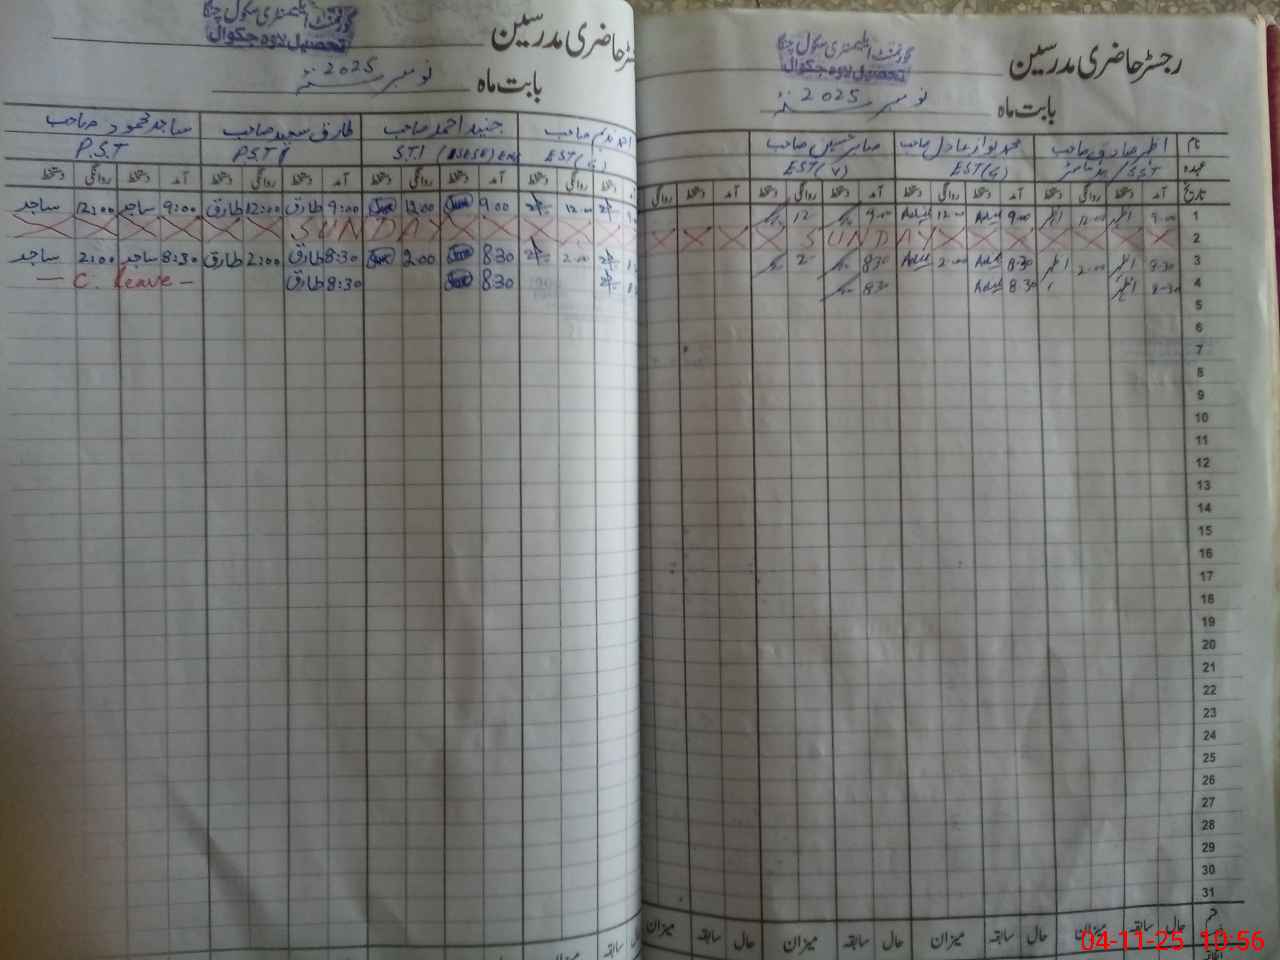 رجسٹر حاضری مدرسین
گورنمنٹ ایلیمنٹری سکول
تحصیل لاوہ چکوال
بابت ماہ نومبر 2025
نام اظہر صادق صاحب محمد نواز عادل صاحب صابر حسین صاحب
عہدہ SST EST(G) EST(V)
تاریخ آمد دستخط روانگی دستخط آمد دستخط روانگی دستخط آمد دستخط روانگی دستخط آمد دستخط روانگی
1 9:00 اظہر 12:00 اظہر 9:00 Adil 12:00 Adil 9:00 12
2 SUNDAY
3 8:30 اظہر 2:00 اظہر 8:30 Adil 2:00 Adil 8:30 2
4 8:30 اظہر 8:30 Adil 8:30
5
6
7
8
9
10
11
12
13
14
15
16
17
18
19
20
21
22
23
24
25
26
27
28
29
30
31
حال سابقہ میزان حال سابقہ میزان حال سابقہ میزان حال سابقہ میزان
رجسٹر حاضری مدرسین
گورنمنٹ ایلیمنٹری سکول
تحصیل لاوہ چکوال
بابت ماہ نومبر 2025
صاحب جنید احمد صاحب طارق سعید صاحب ساجد محمود صاحب
EST(G) S.T.I PST P.S.T
دستخط روانگی دستخط آمد دستخط روانگی دستخط آمد دستخط روانگی دستخط آمد دستخط روانگی دستخط
12:00 9:00 12:00 9:00 طارق 12:00 طارق 9:00 ساجد 12:00 ساجد
SUNDAY
2:00 8:30 2:00 8:30 طارق 2:00 طارق 8:30 ساجد 2:00 ساجد
8:30 8:30 طارق — C. leave —
04-11-25 10:56